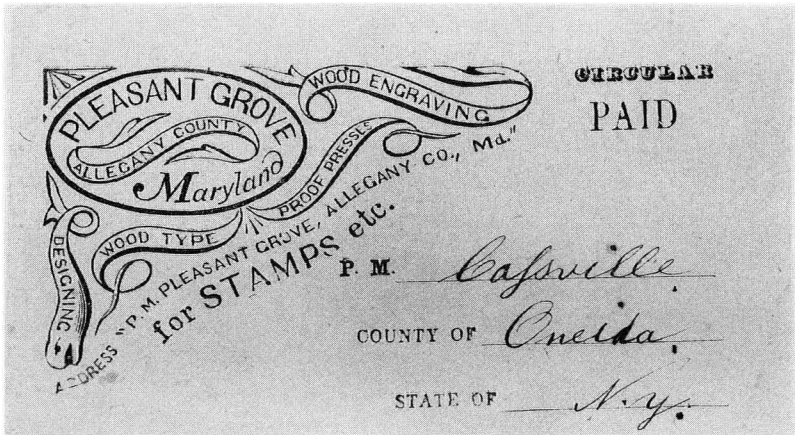 PLEASANT GROVE
ALLEGANY COUNTY
Maryland
WOOD ENGRAVING
PROOF PRESSES
WOOD TYPE
DESIGNING
ADDRESS "P.M. PLEASANT GROVE, ALLEGANY CO., Md."
for STAMPS etc.
CIRCULAR
PAID
P. M. Caſsville
COUNTY OF Oneida
STATE OF N.Y.